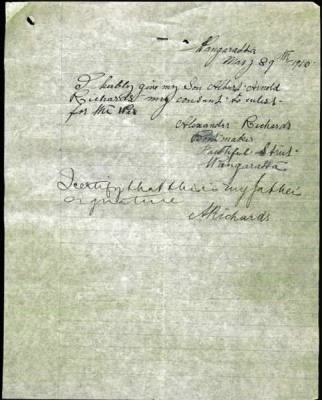 Wangaratta
May 29th 1915
I hably give my Son Albert Arnold
Richards my consent to enlist
for the War
Alexander Richards
Bootmaker
Faithful Street
Wangaratta
I certify that this is my father
signature
A Richards